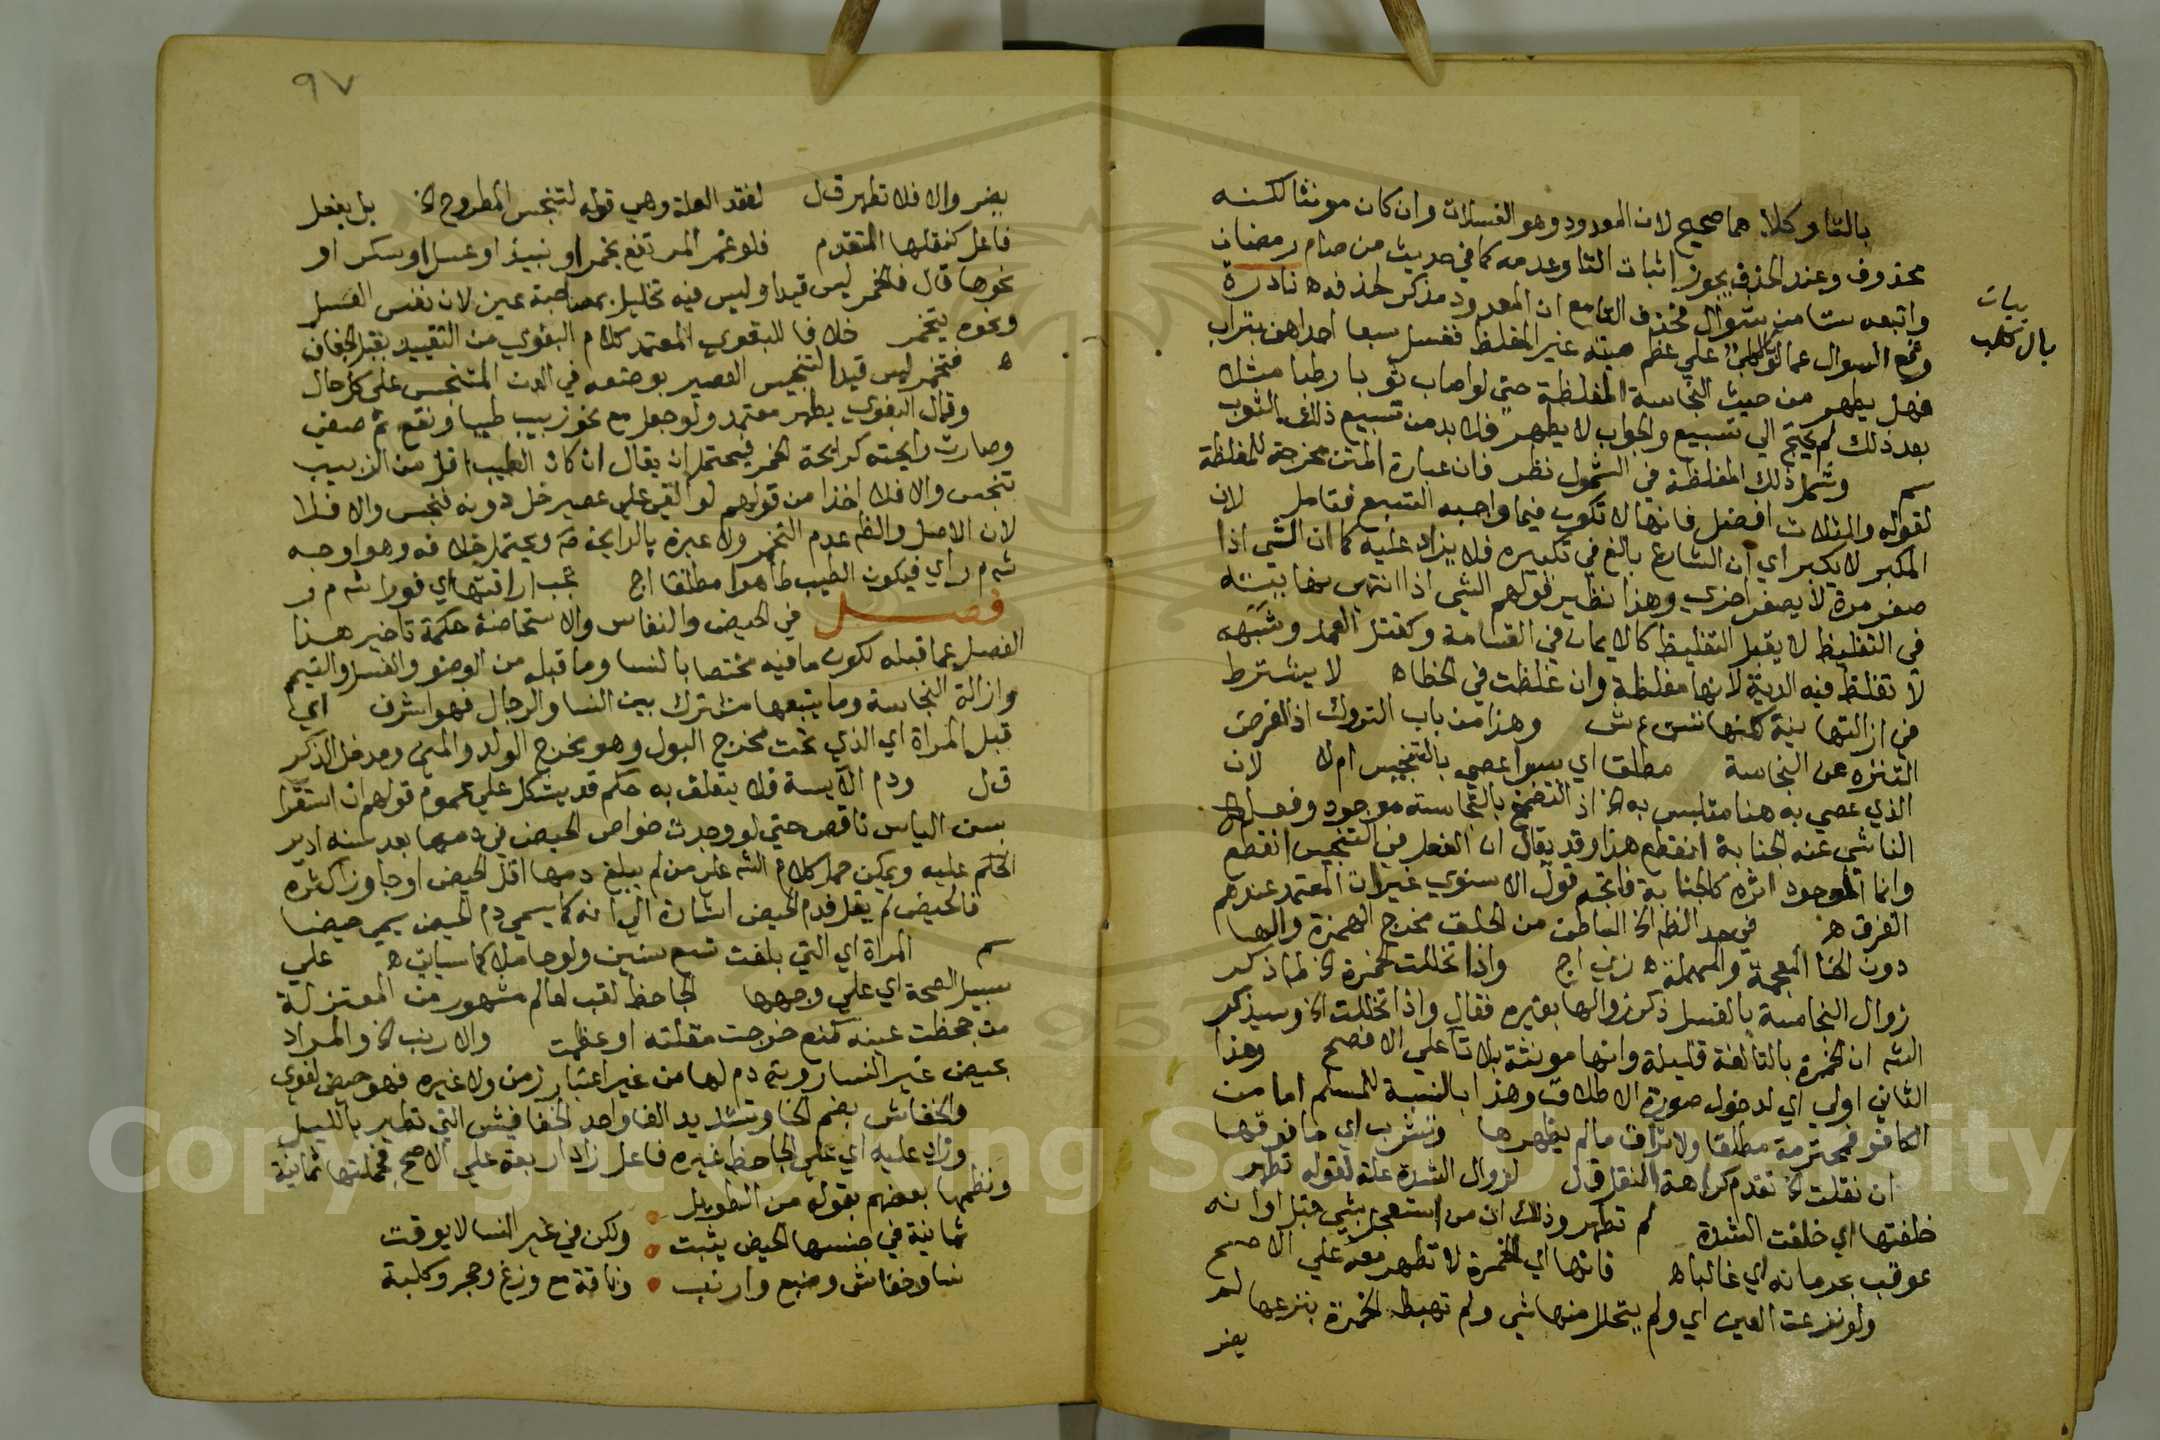 بالتا وكلاهما صحيح لان المعدود وهو الغسلات وان كان مونثا لكنه
محذوف وعند الحذف يجوز اثبات التا وعدمه كما في حديث من صام رمضان
واتبعه ستا من شوال فحذف التا مع ان المعدود مذكر لحذفه ه نادرة
وقع السوال عما لو بال كلب على عظم ميته غير المغلظ فغسل سبعا احداهن بتراب
فهل يطهر من حيث النجاسة المغلظة حتى لو اصاب ثوبا رطبا مثلا
بعد ذلك لم يحتج الي تسبيع والجواب لا يطهر فلا بد من تسبيع ذلك الثوب
سم وشمل ذلك المغلظة في الشمول نظر فان عبارة المتن مخرجة للمغلظة
لقوله والثلاث افضل فانها لا تكون فيما واجبه التسبع فتامل لان
المكبر لا يكبر اي ان الشارع بالغ في تكبيره فلا يزاد عليه كما ان الشي اذا
صغر مرة لا يصغر اخري وهذا نظير قولهم الشي اذا انتهي نهايته
في التغليظ لا يقبل التغليظ كالايمان في القسامة وكقتل العمد وشبهه
لا تغلظ فيه الدية لانها مغلظة وان غلظت في الخطاه لا يشترط
في ازالتها نية لكنها تسن ع ش وهذا من باب التروك اذ الغرض
التنزه عن النجاسة مطلقا اي سوا عصي بالتنجيس ام لا لان
الذي عصي به هنا متلبس به الخ اذ التضمخ بالنجاسة موجود وفعل
الناشي عنه الجنابة انقطع هذا وقد يقال ان الفعل في التنجيس انقطع
وانما الموجود اثره كالجنابة فاتجه قول الاسنوي غير ان المعتمد عندهم
الفرق ه في حد الظه الخ الباطن من الحلق مخرج الهمزة والها
دون الخا المعجمة والمهملة ه زي اج واذا تخللت الخمرة الخ لما ذكر
زوال النجاسة بالغسل ذكر زوالها بغيره فقال واذا تخللت الخ وسيذكر
الشه ان الخمرة بالتا لغة قليلة وانها مونثة بلا تا علي الافصح وهذا
الثاني اولي اي لدخول صورة الاطلاق وهذا بالنسبة للمسلم اما من
الكافر فمحترمة مطلقا ولا تراق ما لم يظهرها وتشرب اي فما فوقها
ان نقلت الخ تقدم كراهة النقل قل لزوال الشدة علة لقوله تطهر
خلفتها اي خلفت الشدة لم تطهر وذلك ان من استعجل بشي قبل اوانه
عوقب بحرمانه اي غالبا ه فانها اي الخمرة لا تطهر معه علي الاصح
ولو نزعت العين اي ولم يتحلل منها شي ولم تهبط الخمرة بنزعها لم
يضر
بيان
بال كلب
٩٧
يضر والا فلا تطهر قل لفقد العلة وهي قوله لتنجس المطروح الخ بل بفعل
فاعل كنقلها المتقدم فلو غمر المرتفع بخمر او نبيذ او عسل او سكر او
نحوها قال فالخمر ليس قيدا وليس فيه تخليل بمصاحبة عين لان نفس العسل
ونحوه يتخمر خلافا للبغوي المعتمد كلام البغوي من التقييد بقبل الجفاف
ه فتخمر ليس قيدا لتنجيس العصير بوضعه في الدن المتنجس علي كل حال
وقال البغوي يطهر معتمد ولو جعل مع نحو زبيب طيبا ونقع ثم صفي
وصارت رايحته كرايحة الخمر فيحتمل ان يقال ان كان الطيب اقل من الزبيب
تنجس والا فلا اخذا من قولهم لو القي علي عصير خل دونه تنجس والا فلا
لان الاصل والظه عدم التخمر ولا عبرة بالرايحة ويحتمل خلافه وهو اوجه
شه م ر اي فيكون الطيب طاهرا مطلقا اج يجب اراقتها اي فورا شه م ر
فصل في الحيض والنفاس والاستحاضة حكمة تاخير هذا
الفصل عما قبله لكون ما فيه مختصا بالنسا وما قبله من الوضو والغسل والتيمم
وازالة النجاسة وما يتبعها مشترك بين النسا والرجال فهو اشرف اي
قبل المراة اي الذي تحت مخرج البول وهو مخرج الولد والمني ومدخل الذكر
قل ودم الآيسة فلا يتعلق به حكم قد يشكل علي عموم قولهم ان استقرا
سن الياس ناقص حتي لو وجدت خواص الحيض في دمها بعد سنه ادير
الحكم عليه ويمكن حمل كلام الشه علي من لم يبلغ دمها اقل الحيض او جاوز اكثره
فالحيض لم يقل فدم الحيض اشارة الي انه كما يسمي دم الحيض يسمي حيضا
سم المراة اي التي بلغت تسع سنين ولو حاملا كما سياتي ه علي
سبيل الصحة اي علي وجهها الجاحظ لقب لعالم مشهور من المعتزلة
من جحظت عينه كمنع خرجت مقلته او عظمت والارنب الخ والمراد
بحيض غير النسا روية دم لها من غير اعتبار زمن ولا غيره فهو حيض لغوي
والخفاش بضم الخا وتشديد الفا واحد الخفافيش التي تطير بالليل
وزاد عليه اي علي الجاحظ غيره فاعل زاد اربعة علي الاصح فجملتها ثمانية
ونظمها بعضهم بقوله من الطويل
ثمانية في جنسها الحيض يثبت ولكن في غير النسا لا يوقت
نسا وخفاش وضبع وارنب وناقة مع وزغ وحجر وكلبة
Copyright © King Saud University